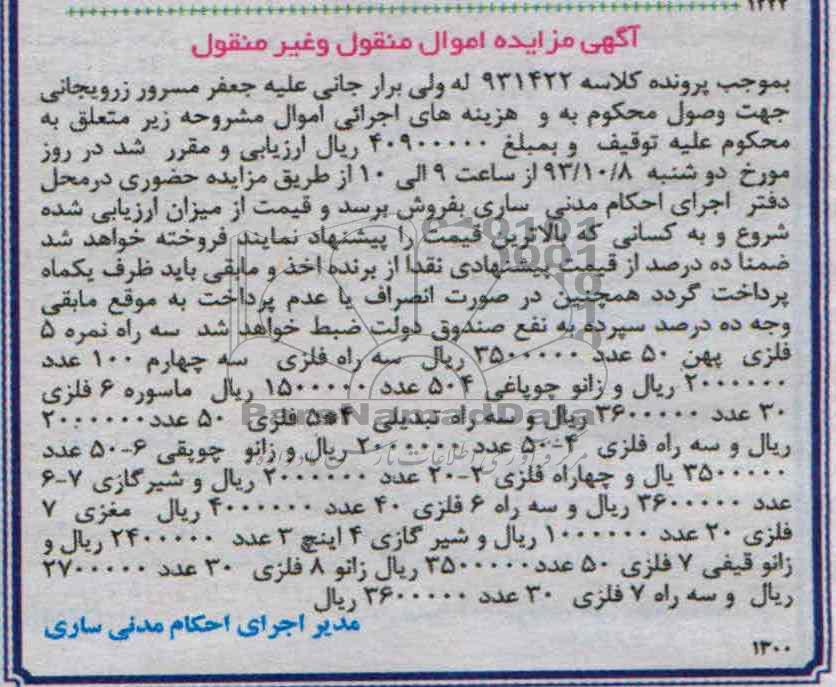 ۱۲۲۲
آگهی مزایده اموال منقول وغیر منقول
بموجب پرونده کلاسه ۹۳۱۴۲۲ له ولی برار جانی علیه جعفر مسرور زرویجانی
جهت وصول محکوم به و هزینه های اجرائی اموال مشروحه زیر متعلق به
محکوم علیه توقیف و بمبلغ ۴۰۹۰۰۰۰۰ ریال ارزیابی و مقرر شد در روز
مورخ دو شنبه ۹۳/۱۰/۸ از ساعت ۹ الی ۱۰ از طریق مزایده حضوری درمحل
دفتر اجرای احکام مدنی ساری بفروش برسد و قیمت از میزان ارزیابی شده
شروع و به کسانی که بالاترین قیمت را پیشنهاد نمایند فروخته خواهد شد
ضمنا ده درصد از قیمت پیشنهادی نقدا از برنده اخذ و مابقی باید ظرف یکماه
پرداخت گردد همچنین در صورت انصراف یا عدم پرداخت به موقع مابقی
وجه ده درصد سپرده به نفع صندوق دولت ضبط خواهد شد سه راه نمره ۵
فلزی پهن ۵۰ عدد ۳۵۰۰۰۰۰ ریال سه راه فلزی سه چهارم ۱۰۰ عدد
۲۰۰۰۰۰۰ ریال و زانو چوپاغی ۴-۵۰ عدد ۱۵۰۰۰۰۰ ریال ماسوره ۶ فلزی
۳۰ عدد ۳۶۰۰۰۰۰ ریال و سه راه تبدیلی ۴*۵ فلزی ۵۰ عدد ۲۰۰۰۰۰۰
ریال و سه راه فلزی ۴-۵۰ عدد ۲۰۰۰۰۰۰ ریال و زانو چوپقی ۶-۵۰ عدد
۳۵۰۰۰۰۰ یال و چهاراه فلزی ۳-۲۰ عدد ۲۰۰۰۰۰۰ ریال و شیر گازی ۷-۶
عدد ۳۶۰۰۰۰۰ ریال و سه راه ۶ فلزی ۴۰ عدد ۴۰۰۰۰۰۰ ریال مغزی ۷
فلزی ۲۰ عدد ۱۰۰۰۰۰۰ ریال و شیر گازی ۴ اینچ ۳ عدد ۲۴۰۰۰۰۰ ریال و
زانو قیفی ۷ فلزی ۵۰ عدد ۳۵۰۰۰۰۰ ریال زانو ۸ فلزی ۳۰ عدد ۲۷۰۰۰۰۰
ریال و سه راه ۷ فلزی ۳۰ عدد ۳۶۰۰۰۰۰ ریال
مدیر اجرای احکام مدنی ساری
۱۳۰۰
ParsNamadData